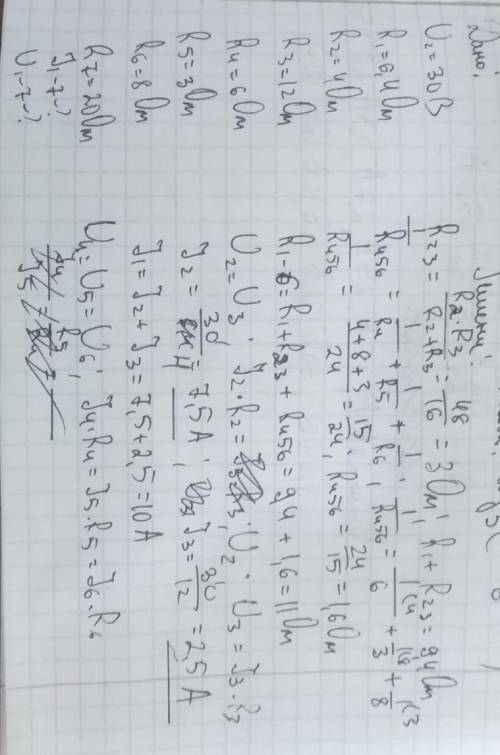 Дано:
U₂=30В
R₁=6,4Ом
R₂=4Ом
R₃=12Ом
R₄=6Ом
R₅=3Ом
R₆=8Ом
R₇=20Ом
J₁-7-?
U₁-7-?
R₂₃ = R₂·R₃/R₂+R₃ = 48/16 = 3Ом; R₁+R₂₃=9,4Ом
1/R₄₅₆ = 1/R₄ + 1/R₅ + 1/R₆; 1/R₄₅₆ = 1/6 + 1/3 + 1/8
1/R₄₅₆ = 4+8+3/24 = 15/24; R₄₅₆ = 24/15 = 1,6Ом
R₁-₆=R₁+R₂₃+R₄₅₆=9,4+1,6=11Ом
U₂=U₃; J₂·R₂= U₂; U₃=J₃·R₃
J₂ = 30/4 = 7,5А; J₃ = 30/12 = 2,5А
J₁=J₂+J₃=7,5+2,5=10А
U₄=U₅=U₆; J₄·R₄=J₅·R₅=J₆·R₆